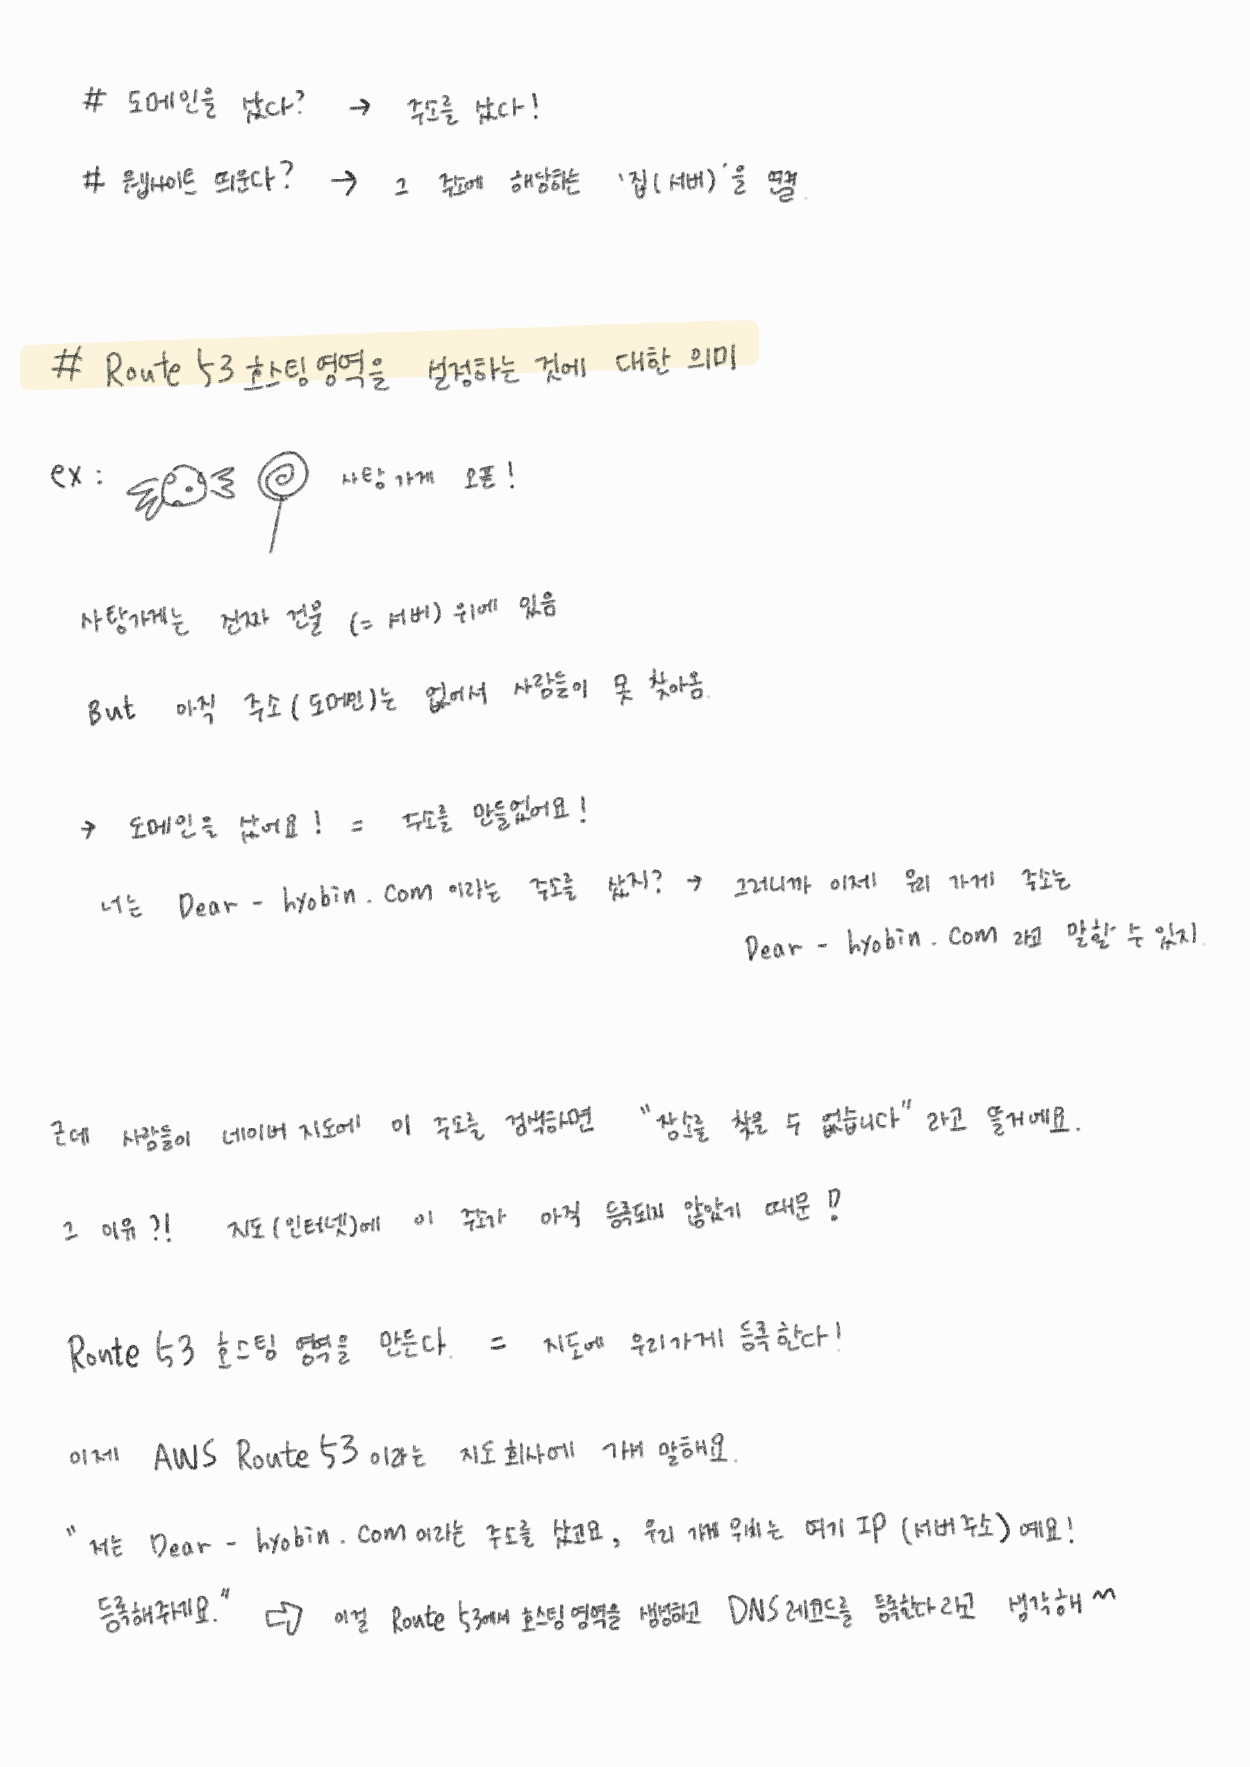 # 도메인을 샀다? → 주소를 샀다!
# 웹사이트 띄운다? → 그 주소에 해당하는 '집(서버)'을 연결.
# Route 53 호스팅 영역을 설정하는 것에 대한 의미
ex : 사탕가게 오픈!
사탕가게는 진짜 건물 (= 서버) 위에 있음
But 아직 주소(도메인)는 없어서 사람들이 못 찾아옴.
→ 도메인을 샀어요! = 주소를 만들었어요!
너는 Dear - hyobin . com 이라는 주소를 샀지? → 그러니까 이제 우리 가게 주소는
Dear - hyobin . com 라고 말할 수 있지.
근데 사람들이 네이버 지도에 이 주소를 검색하면 "장소를 찾을 수 없습니다" 라고 뜰거에요.
그 이유?! 지도(인터넷)에 이 주소가 아직 등록되지 않았기 때문!
Route 53 호스팅 영역을 만든다. = 지도에 우리가게 등록한다!
이제 AWS Route 53 이라는 지도 회사에 가서 말해요.
"저는 Dear - hyobin . com 이라는 주소를 샀고요, 우리 가게 위치는 여기 IP (서버주소) 예요!
등록해주세요." ⇨ 이걸 Route 53에서 호스팅영역을 생성하고 DNS 레코드를 등록한다 라고 생각해 ^^